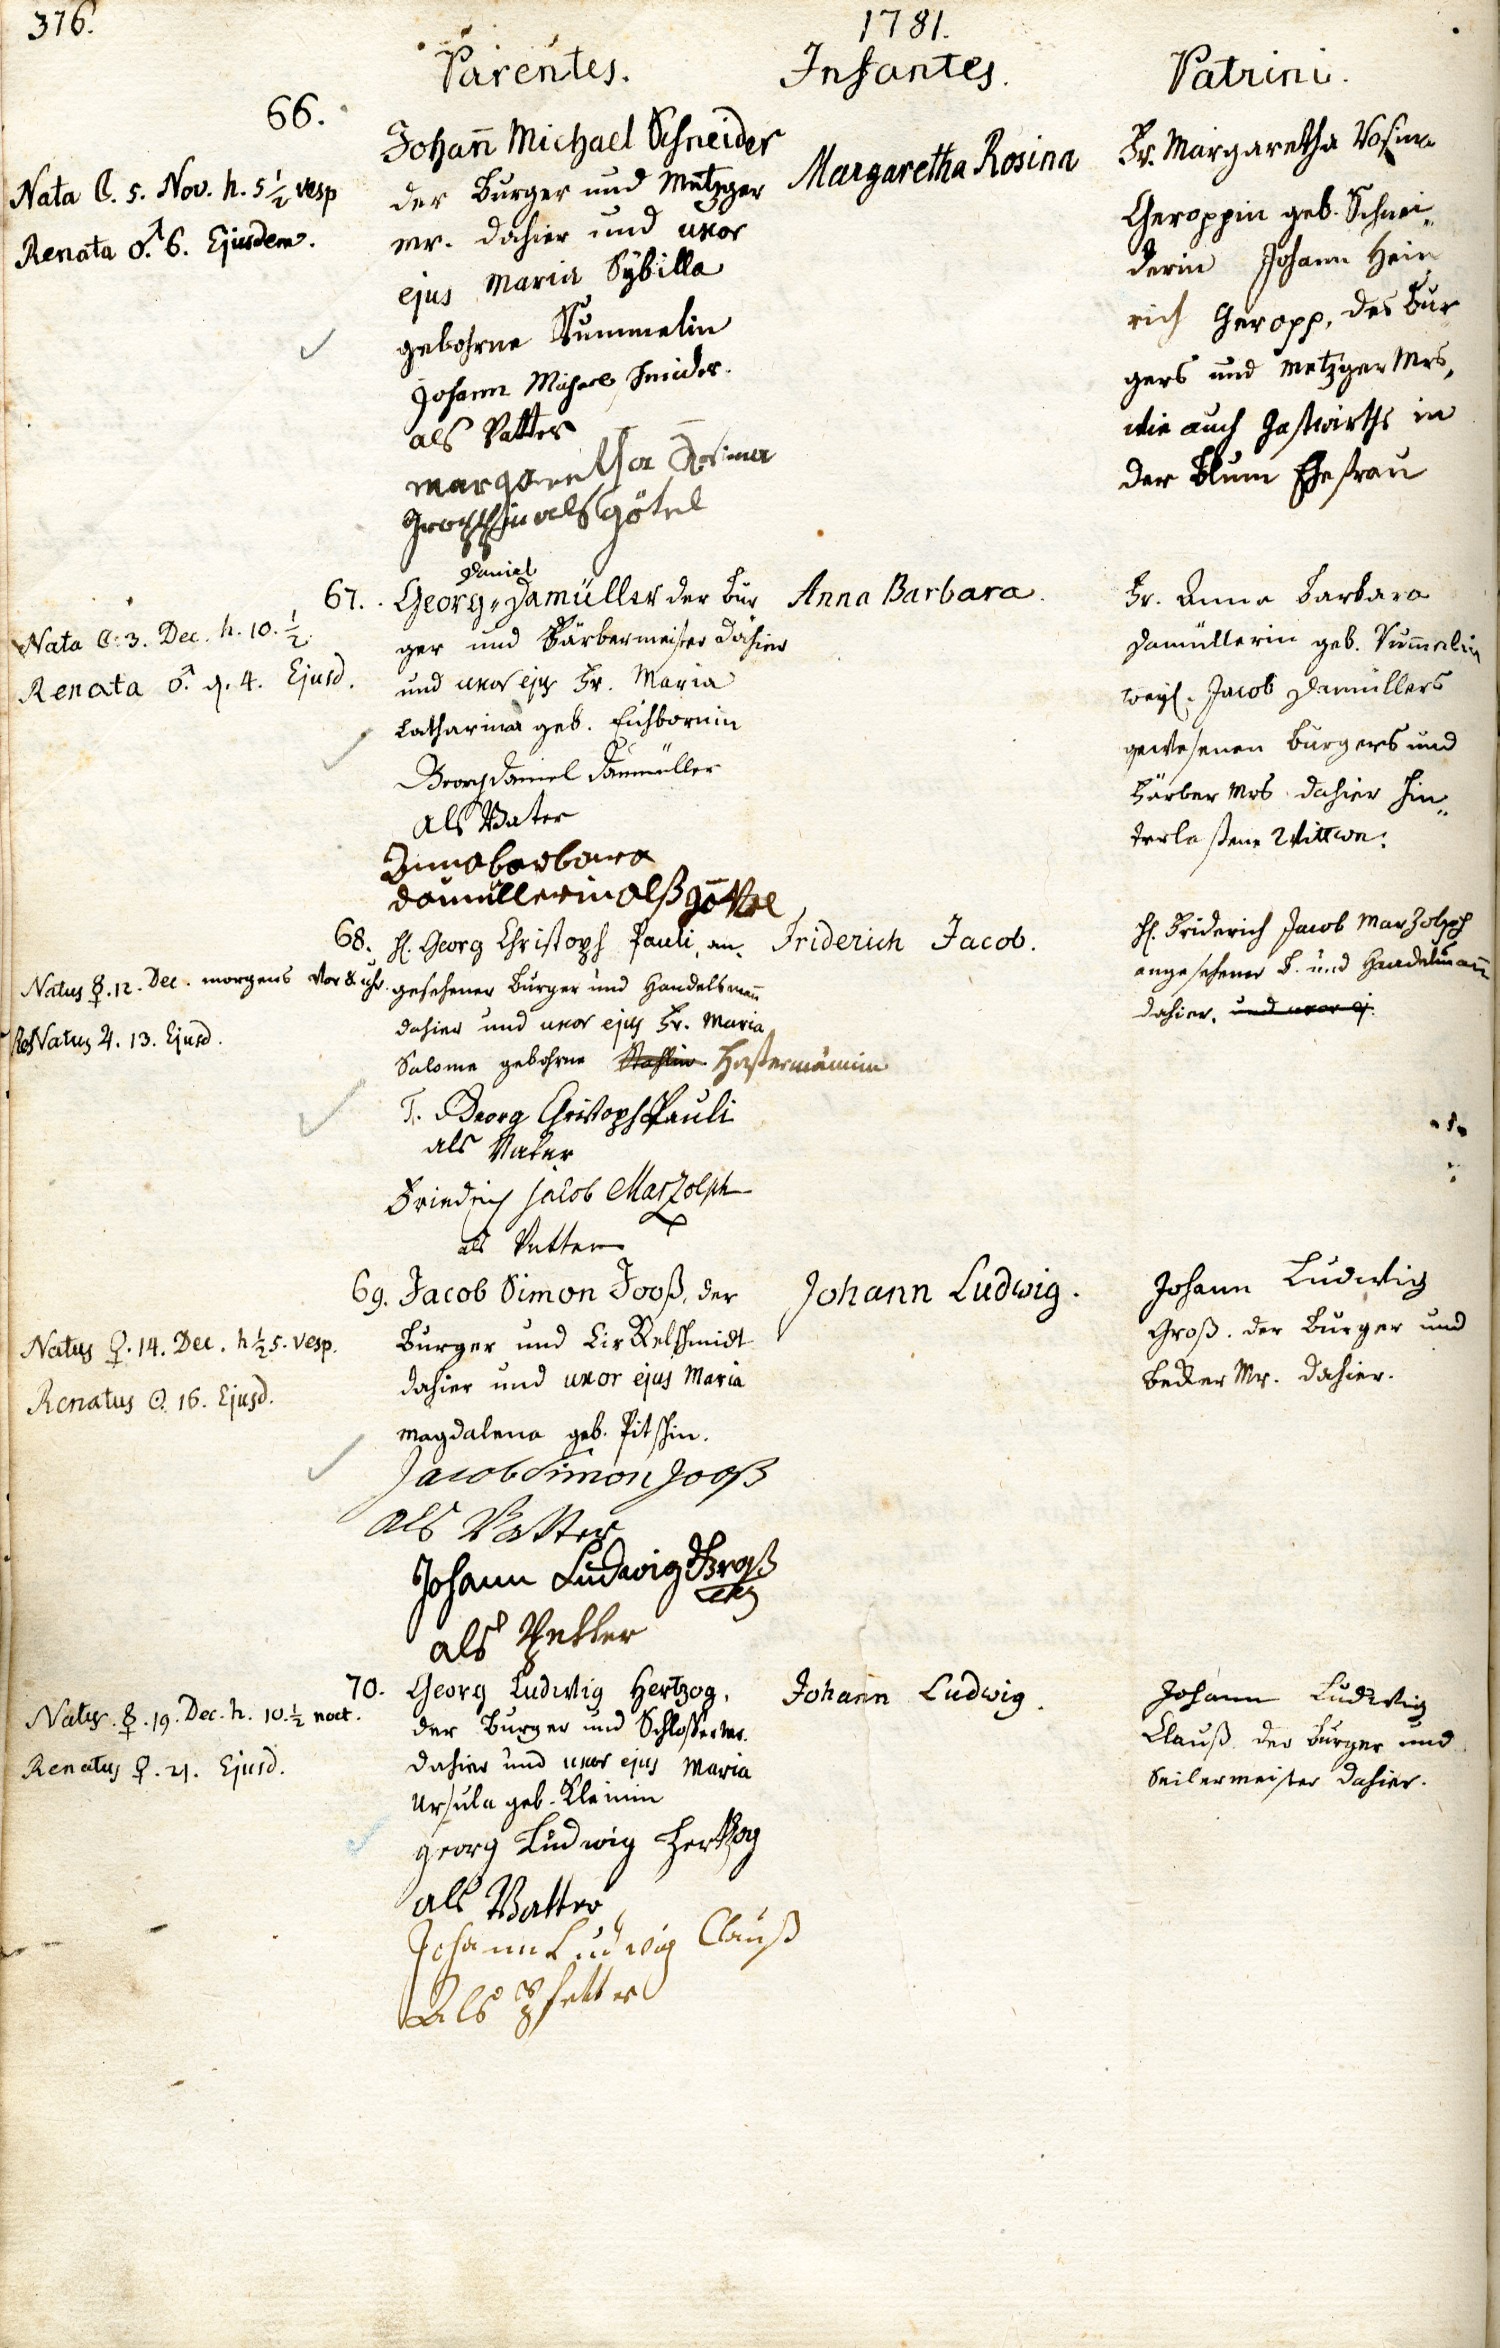 376.
1781.
Parentes. Infantes. Patrini.
66.
Nata ☾. 5. Nov. h. 5 1/2 vesp
Renata ♂. 6. Ejusdem.
Johañ Michael Schneider
der Burger und Metzger
mr. dahier und uxor
ejus Maria Sybilla
gebohrne Kummelin
Johann Michael Schneider.
als Vatter
Margaretha Rosina
Geroppin als Götel
Margaretha Rosina
Fr. Margaretha Rosina
Geroppin geb. Schnei„
derin Johann Hein
rich Geropp, des Bur
gers und Metzger Mrs,
wie auch Gastwirths in
der Blum Ehefrau
67.
Nata ☾. 3. Dec. h. 10. 1/2.
Renata ♂. d. 4. Ejusd.
Daniel
Georg „ Damüller der Bur
ger und Färbermeister dahier
und uxor ejus Fr. Maria
Catharina geb. Eichbornin
Georg Daniel Damüller
als Vater
Anna barbara
damüllerin alß götel
Anna Barbara.
Fr. Anna Barbara
Damüllerin geb. Kum̃elin
weyl. Jacob Damüllers
gewesenen Burgers und
Färber Mrs dahier hin„
terlaßene Wittwe.
68.
Natus ☿. 12. Dec. morgens vor 8 uhr.
ReNatus ♃. 13. Ejusd.
H. Georg Christoph Pauli, an„
gesehener Burger und Handelsmañ
dahier und uxor ejus Fr. Maria
Salome gebohrne Stahlin Hastermännin
T. Georg Christoph Pauli
als Vater
Friedrich Jacob Marzolph
als Petter
Friderich Jacob.
H. Friderich Jacob Marzolph
angesehener B. und Handelsmañ
dahier. und uxor ej.
69.
Natus ♀. 14. Dec. h 1/2 5. vesp.
Renatus ☉. 16. Ejusd.
Jacob Simon Jooß, der
Burger und Zirkelschmidt
dahier und uxor ejus Maria
Magdalena geb. Pitschin.
Jacob Simon Jooß
als Vatter
Johann Ludwig Groß
als Petter
Johann Ludwig.
Johann Ludwig
Groß. der Burger und
Becker Mr. dahier.
70.
Natus. ☿. 19. Dec. h. 10. 1/2 noct.
Renatus ♀. 21. Ejusd.
Georg Ludwig Hertzog,
der Burger und Schlosser Mr.
dahier und uxor ejus Maria
Ursula geb. Kleinin
georg Ludwig Hertzog
als Vatter
Johann Ludwig Clauß
Als Pfetter
Johann Ludwig.
Johann Ludwig
Clauß der Burger und
Seilermeister dahier.